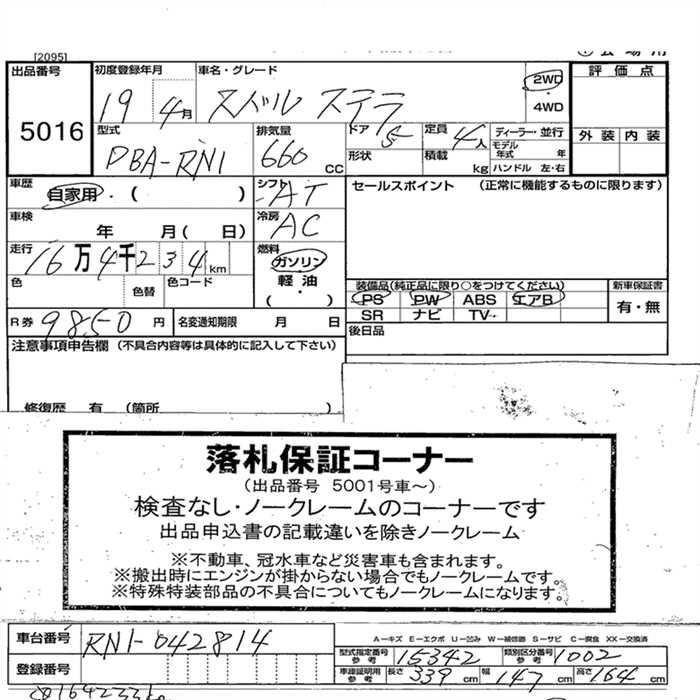 [2095]
出品番号
5016
初度登録年月 車名・グレード
19 4月 スバル ステラ
2WD
・
4WD
型式 DBA-RN1
排気量 660 CC
ドア 5 定員 4人 ディーラー・並行
形状 積載 kg モデル年式 年
ハンドル 左・右
評価点
外装 内装
車歴 自家用・( )
シフト AT
車検 年 月( 日)
冷房 AC
走行 16万4千234km
燃料 ガソリン
・
軽油
( )
色 色替 色コード
R券 9850円 名変通知期限 月 日
セールスポイント (正常に機能するものに限ります)
装備品(純正品に限り○をつけてください) 新車保証書
PS PW ABS エアB 有・無
SR ナビ TV
後日品
注意事項申告欄 (不具合内容等は具体的に記入して下さい)
修復歴 有 (箇所 )
落札保証コーナー
(出品番号 5001号車~)
検査なし・ノークレームのコーナーです
出品申込書の記載違いを除きノークレーム
※不動車、冠水車など災害車も含まれます。
※搬出時にエンジンが掛からない場合でもノークレームです。
※特殊特装部品の不具合についてもノークレームになります。
車台番号 RN1-042814
登録番号
A-キズ E-エクボ U-凹み W-補修跡 S-サビ C-腐食 XX-交換済
型式指定番号 参考 15342 類別区分番号 参考 1002
車庫証明用 参考 長さ 339cm 幅 147cm 高さ 164cm